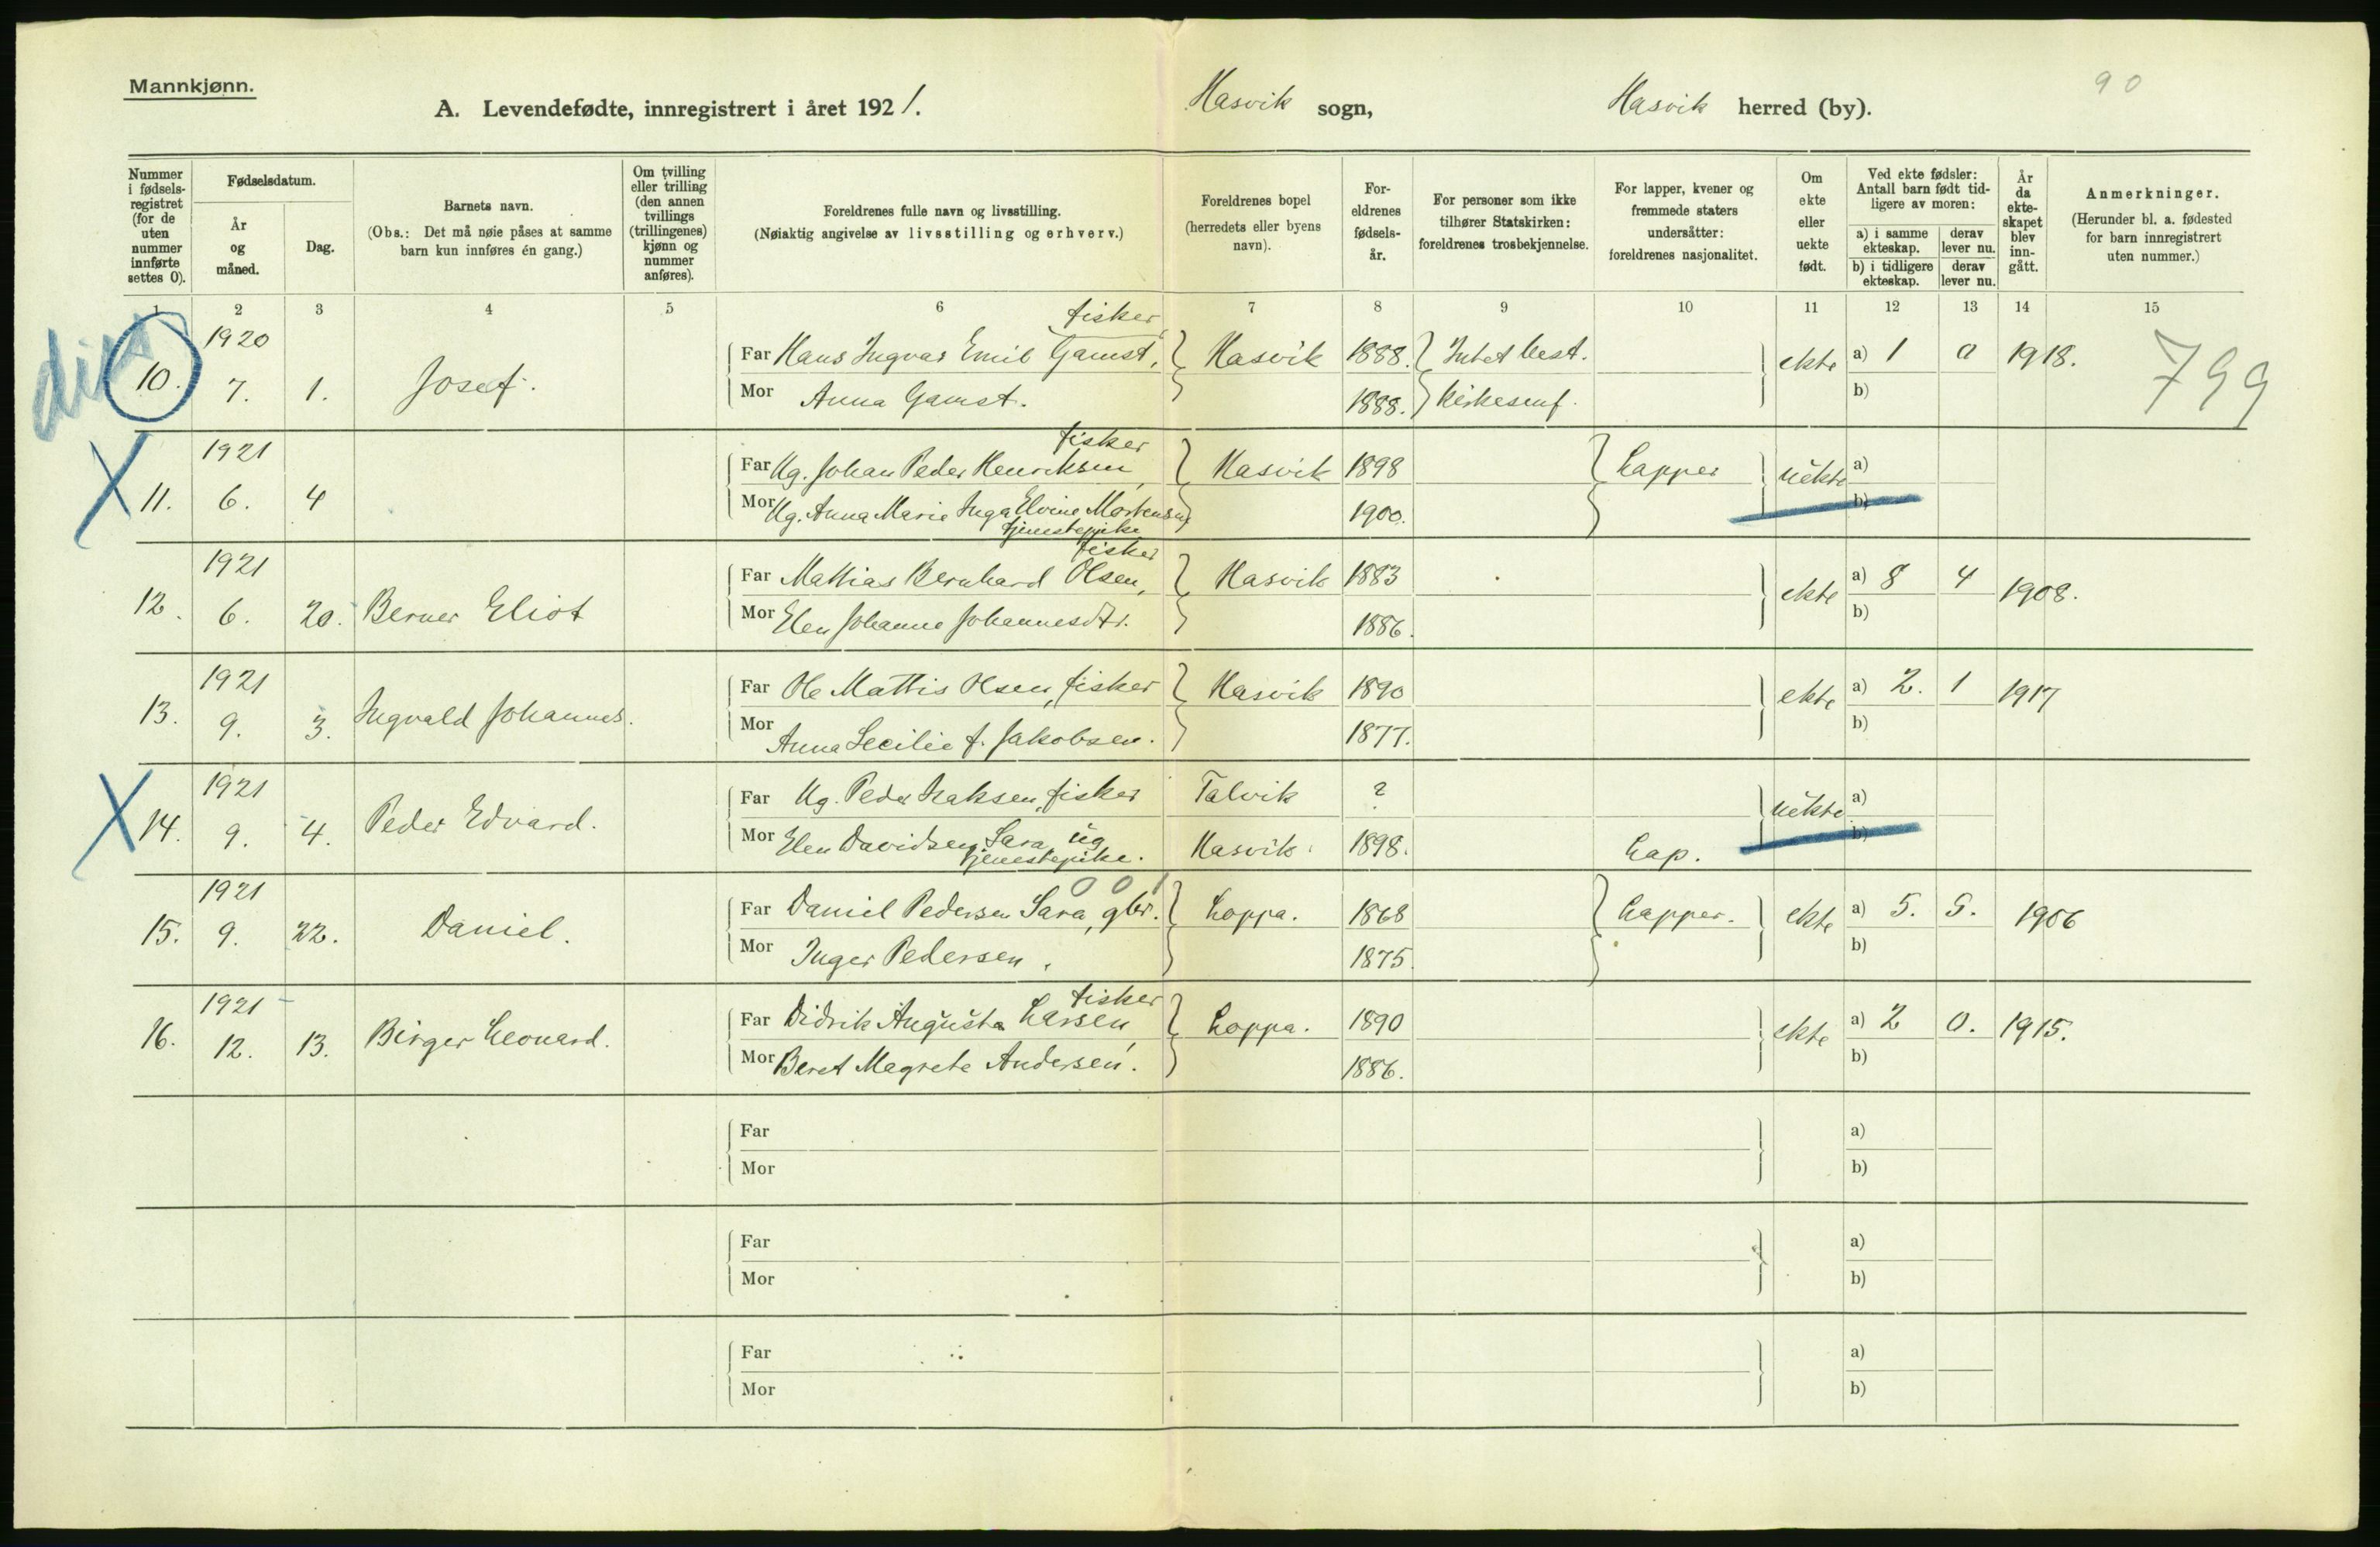 Mannkjønn.
90
A. Levendefødte, innregistrert i året 1921. Hasvik sogn, Hasvik herred (by).
Nummer i fødselsregistret (for de uten nummer innførte settes 0).
Fødselsdatum.
År og måned.
Dag.
Barnets navn.
(Obs.: Det må nøie påses at samme barn kun innføres én gang.)
Om tvilling eller trilling (den annen tvillings (trillingenes) kjønn og nummer anføres).
Foreldrenes fulle navn og livsstilling.
(Nøiaktig angivelse av livsstilling og erhverv.)
Foreldrenes bopel (herredets eller byens navn).
Foreldrenes fødselsår.
For personer som ikke tilhører Statskirken: foreldrenes trosbekjennelse.
For lapper, kvener og fremmede staters undersåtter: foreldrenes nasjonalitet.
Om ekte eller uekte født.
Ved ekte fødsler: Antall barn født tidligere av moren:
a) i samme ekteskap. derav lever nu.
b) i tidligere ekteskap. derav lever nu.
År da ekteskapet blev inngått.
Anmerkninger.
(Herunder bl. a. fødested for barn innregistrert uten nummer.)
1 2 3 4 5 6 7 8 9 10 11 12 13 14 15
1920 fisker
Far Hans Ingvar Emil Gamst, Hasvik 1888. Intet best. ekte a) 1 0 1918.
10. 7. 1. Josef. 799
Mor Anna Gamst. 1888. kirkesamf. b)
1921 fisker
Far Ug. Johan Peder Henriksen, Hasvik 1898 Lapper uekte a)
11. 6. 4
Mor Ug. Anna Marie Inga Elvine Mortensen, 1900. b)
tjenestepike
1921 fisker
Far Mathias Bernhard Olsen, Hasvik 1883 ekte a) 8 4 1908.
12. 6. 20. Berner Eliot
Mor Elen Johanne Johannesdtr. 1886. b)
1921
Far Ole Mattis Olsen, fisker Hasvik 1890 ekte a) 2. 1 1917
13. 9. 3. Ingvald Johannes.
Mor Anna Cecilie f. Jakobsen. 1877. b)
1921
Far Ug. Peder Isaksen, fisker Talvik ? uekte a)
14. 9. 4. Peder Edvard.
Mor Elen Davidsen Sara, ug Hasvik. 1898. Lap. b)
tjenestepike.
1921 0 0 1
Far Daniel Pedersen Sara, gbr. Loppa. 1868 Lapper. ekte a) 5. 5. 1906
15. 9. 22. Daniel.
Mor Inger Pedersen. 1875. b)
1921 fisker
Far Didrik Augusta Larsen, Loppa. 1890 ekte a) 2 0. 1915.
16. 12. 13. Birger Leonard.
Mor Beret Magrete Andersen. 1886. b)
Far a)
Mor b)
Far a)
Mor b)
Far a)
Mor b)